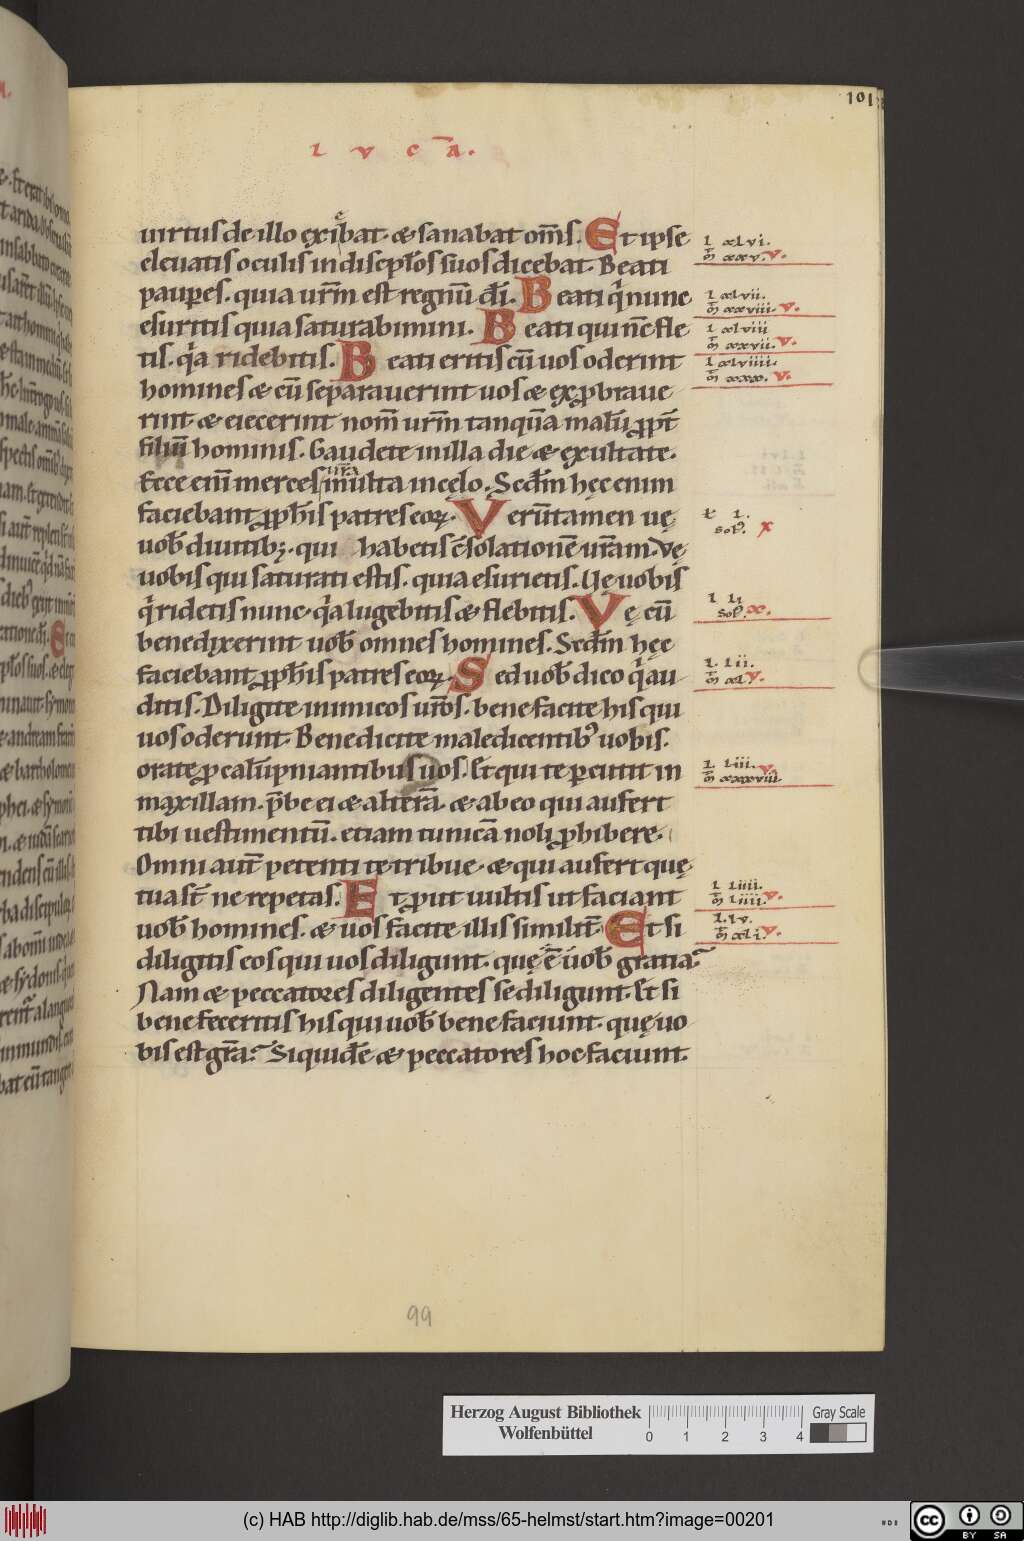 101
LVCA.
uirtus de illo exibat. & sanabat om̅s. Et ipse
eleuatis oculis in discip̅los suos dicebat. Beati
paup̲es. quia ur̅m est regnu̅ d̅i. Beati q̍ nunc
esuritis quia saturabimini. Beati qui nc̅ fle
tis. q̍a ridebitis. Beati eritis cu̅ uos oderint
homines & cu̅ separauerint uos & exp̲braue
rint. & eiecerint nom̅ ur̅m tanqua̅ malu̅ p̲p̅t
filiu̅ hominis. Gaudete in illa die & exultate.
Ecce eni̅ merces ur̅a multa in cęlo. Secd̅m hęc enim
faciebant p̲ph̅is patres eoꝝ. Veru̅tamen uę
uob̅ diuitib; . qui habetis c̅solatione̅ ur̅am. Vę
uobis qui saturati estis. quia esurietis. Uę uobis
q̍ ridetis nunc. q̍a lugebitis & flebitis. Vę cu̅
benedixerint uob̅ omnes homines. Secd̅m hęc
faciebant p̲ph̅is patres eoꝝ. Sed uob̅ dico q̍ au
ditis. Diligite inimicos ur̅os. bene facite his qui
uos oderunt. Benedicite maledicentib⁹ uobis.
orate p̲ calu̅pniantibus uos. Et qui te p̲cutit in
maxillam. p̅be ei & altera̅. & ab eo qui aufert
tibi uestimentu̅. etiam tunica̅ noli p̲hibere.
Omni aut̅ petenti te tribue. & qui aufert quę
tua st̅ ne repetas. Et p̲ut uultis ut faciant
uob̅ homines. & uos facite illis similit̅. Et si
diligitis eos qui uos diligunt. quę e̅ uob̅ gratia?
Nam & peccatores diligentes se diligunt. Et si
benefeceritis his qui uob̅ bene faciunt. quę uo
bis est gr̅a? Siquide̅ & peccatores hoc faciunt.
l xlvi.
m̅ xxv. v.
l xlvii.
m̅ xxviii. v.
l xlviii
m̅ xxvii. v.
l xlviiii.
m̅ xxx. v.
l l.
sol⁹. x
l li
sol⁹. x.
l. lii.
m̅ xl v.
l. liii. v.
m̅ xxxviii
l liiii.
m̅ liiii. v.
l. lv.
m̅ xli. v.
99
Herzog August Bibliothek
Wolfenbüttel
0 1 2 3 4
Gray Scale
(c) HAB http://diglib.hab.de/mss/65-helmst/start.htm?image=00201
cc BY SA